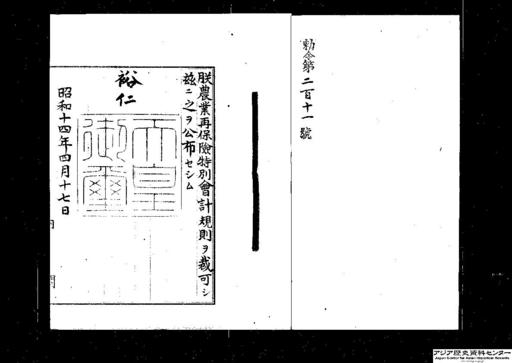 勅令第二百十一號
朕農業再保險特別會計規則ヲ裁可シ
茲ニ之ヲ公布セシム
裕仁
天皇
御璽
昭和十四年四月十七日
アジア歴史資料センター
Japan Center for Asian Historical Records